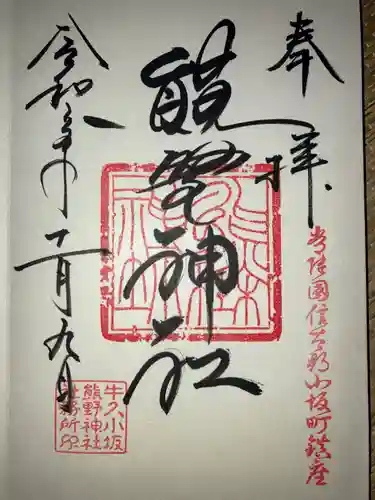 奉拝
常陸國信太郡小坂町鎮座
熊野神社
令和年十一月九日
牛久小坂
熊野神社
社務所印